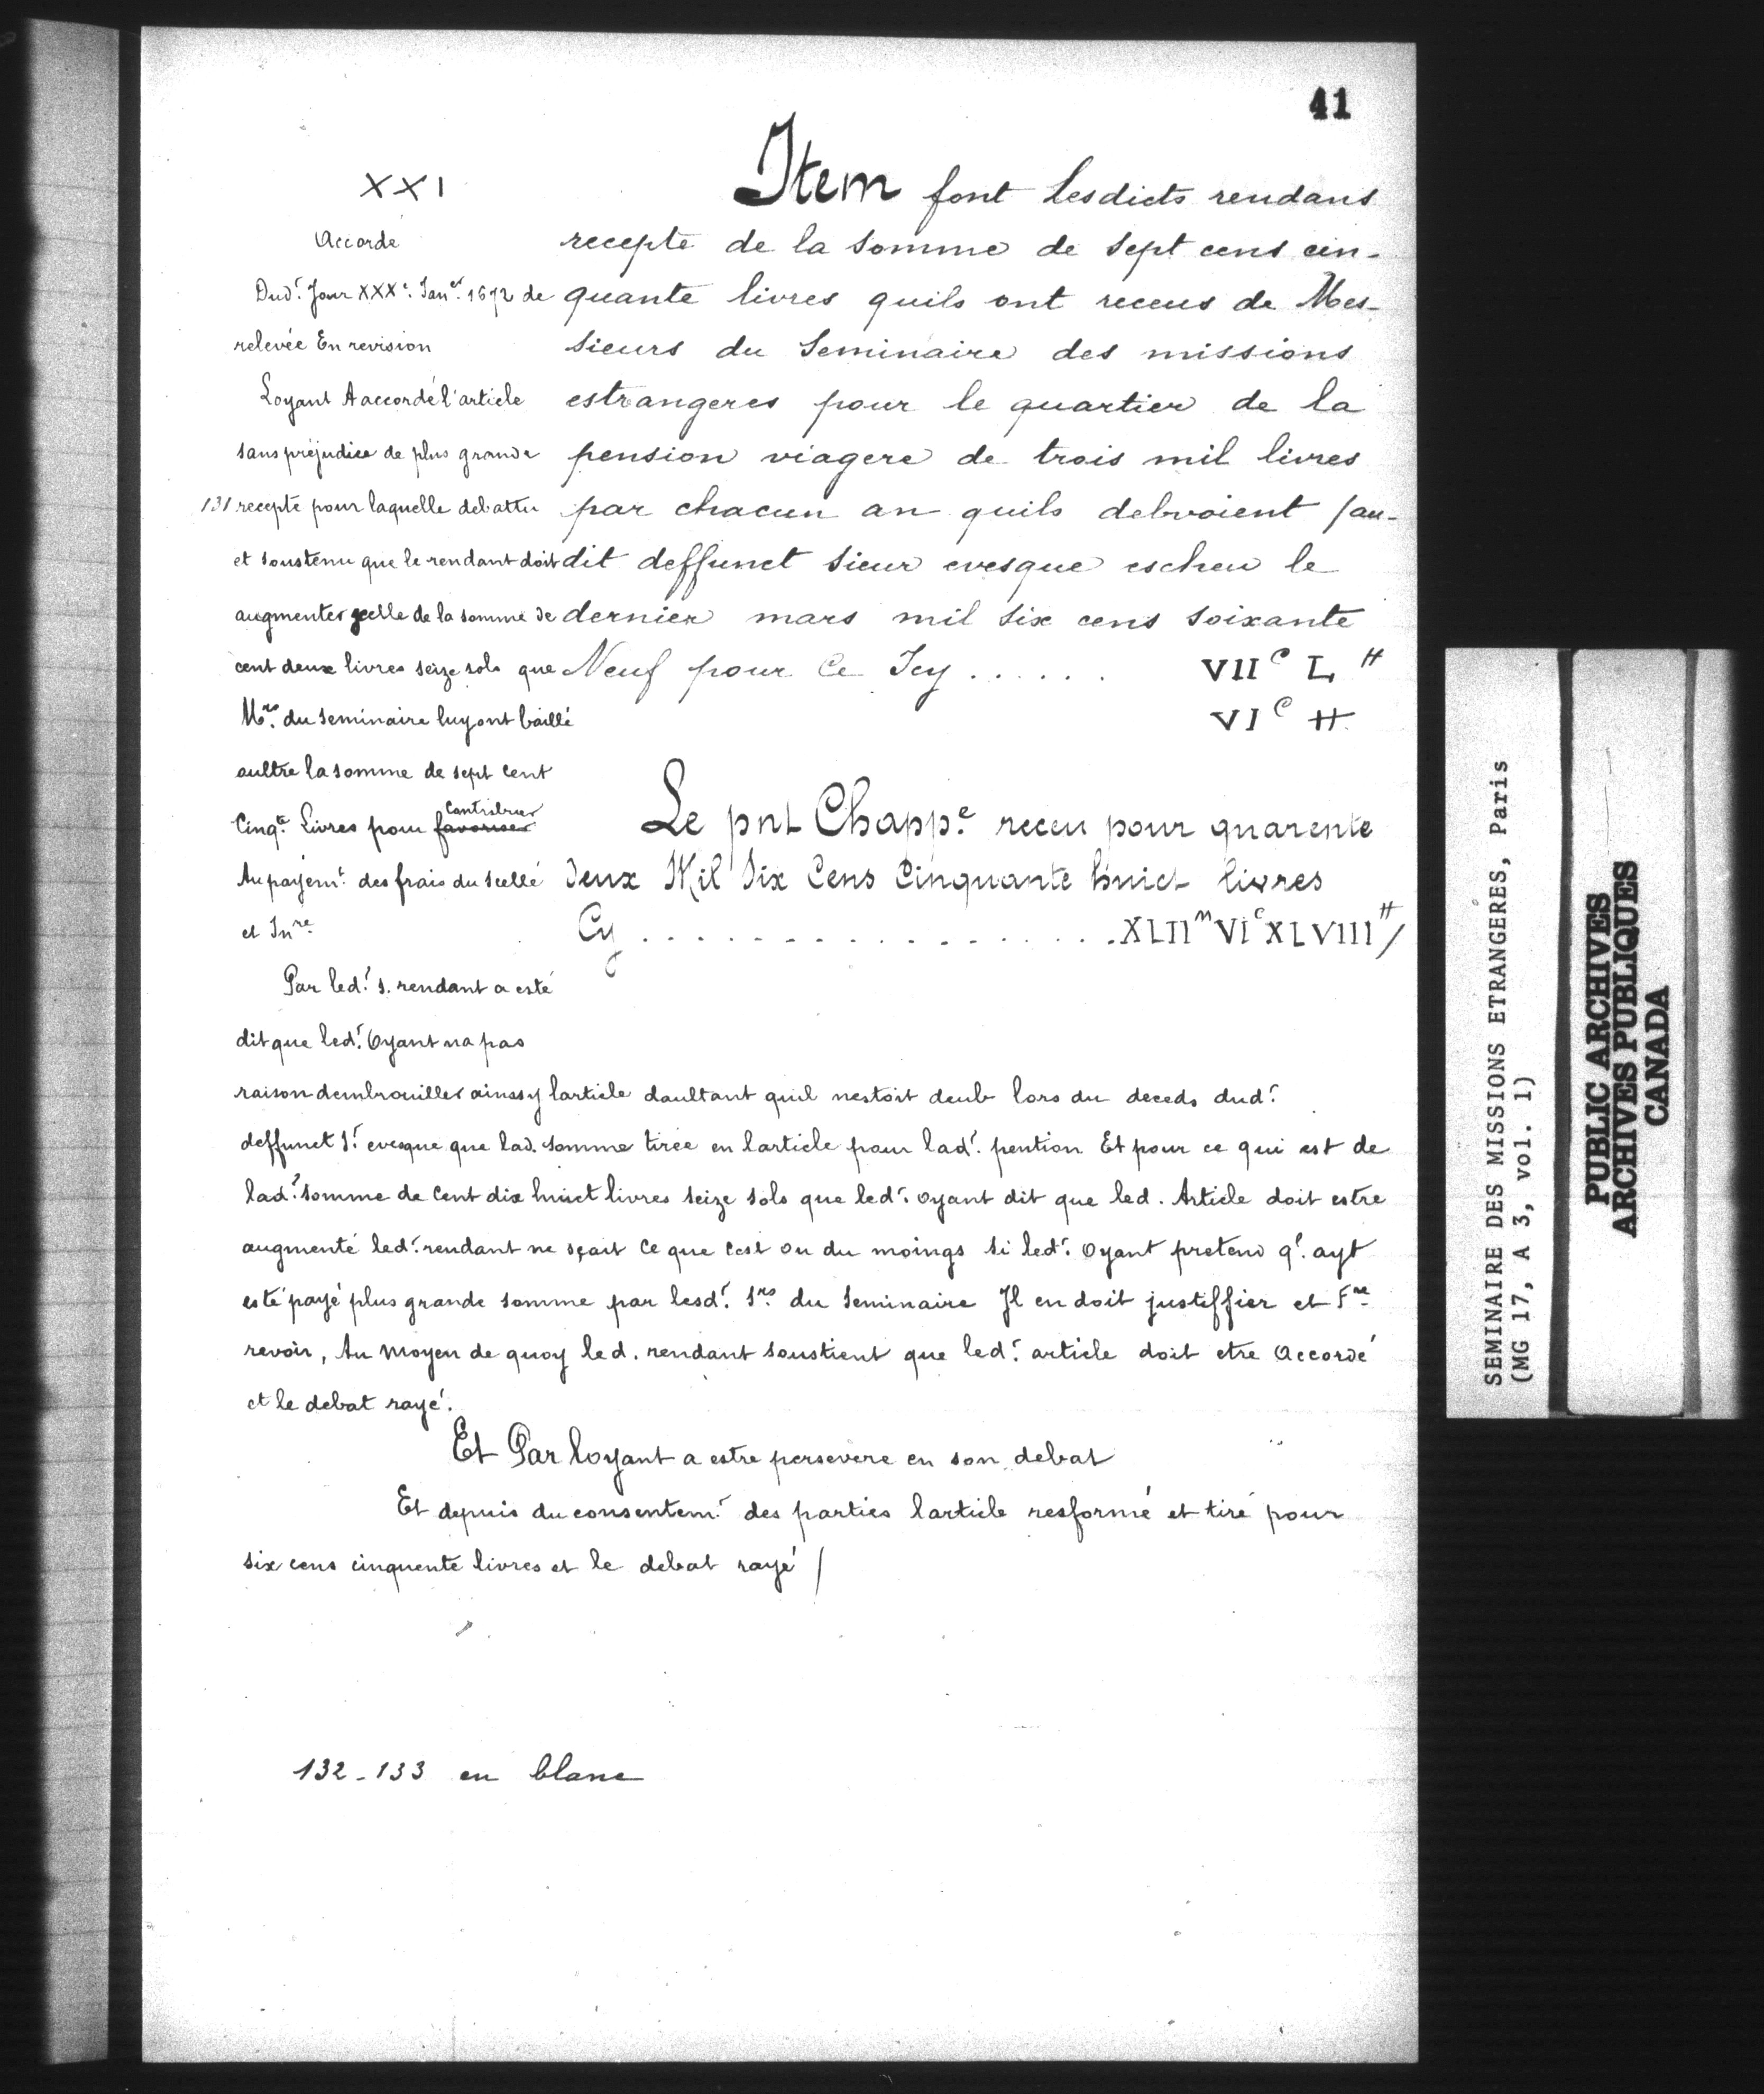 41
XXI
Accordé
Dud.t Jour XXXe. Janer. 1672 de
relevée En revision
Loyant A accordé l'article
sans préjudice de plus grande
131 recepte pour laquelle debattu
et soustenu que le rendant doit
augmenter ycelle de la somme de
cent deux livres seize sols que
Mrs. du seminaire luy ont baillé
aultre la somme de sept cent
Cinqte. Livres pour favoriser contribuer
Au payemt. des frais du scellé
et Inre.
Item font Lesdicts rendans
recepte de la somme de sept cens cin-
quante livres quils ont receus de Mes-
sieurs du Seminaire des missions
estrangeres pour le quartier de la
pension viagere de trois mil livres
par chacun an quils debvoient /au-
dit deffunct sieur evesque escheu le
dernier mars mil six cens soixante
Neuf pour Ce Icy ...... VIIc L ₶
VIc ₶
Le pnt Chapp.e receu pour quarente
deux Mil Six Cens Cinquante huict livres
Cy .................. XLIIm VIc XLVIII₶/
Par led.t s. rendant a esté
dit que led.t Oyant na pas
raison dembrouiller ainssy larticle daultant quil nestoit deub lors du deceds dud.t
deffunct S.r evesque que lad. somme tirée en larticle pour lad.t pention Et pour ce qui est de
lad.t somme de Cent dix huict livres seize sols que led.t oyant dit que led. Article doit estre
augmenté led.t rendant ne sçait Ce que Cest ou du moings si led.t Oyant pretend q.l ayt
esté payé plus grande somme par lesd.t Srs. du Seminaire Il en doit justiffier et Fre.
revoir, Au moyen de quoy led. rendant soustient que led.t article doit etre Accordé
et le debat rayé.
Et Par loyant a estre persevere en son debat
Et depuis du consentem.t des parties larticle resformé et tiré pour
six cens cinquente livres et le debat rayé /
132-133 en blanc
SEMINAIRE DES MISSIONS ETRANGERES, Paris
(MG 17, A 3, vol. 1)
PUBLIC ARCHIVES
ARCHIVES PUBLIQUES
CANADA